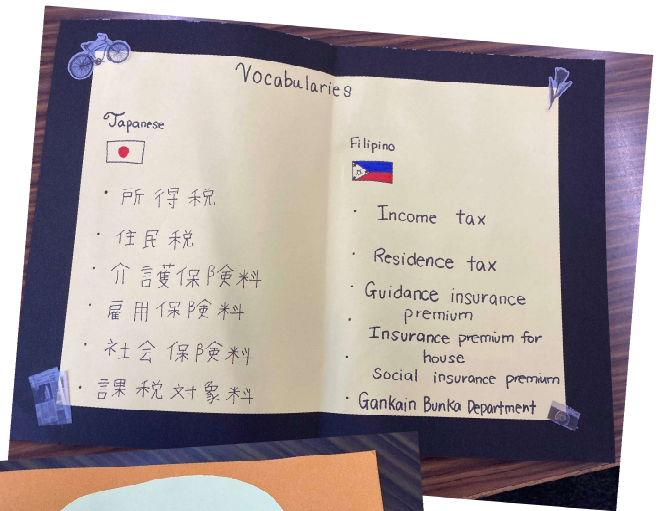 Vocabularies
Japanese
・所得税
・住民税
・介護保険料
・雇用保険料
・社会保険料
・課税対象料
Filipino
・Income tax
・Residence tax
・Guidance insurance
premium
・Insurance premium for
house
・Social insurance premium
・Gankain Bunka Department